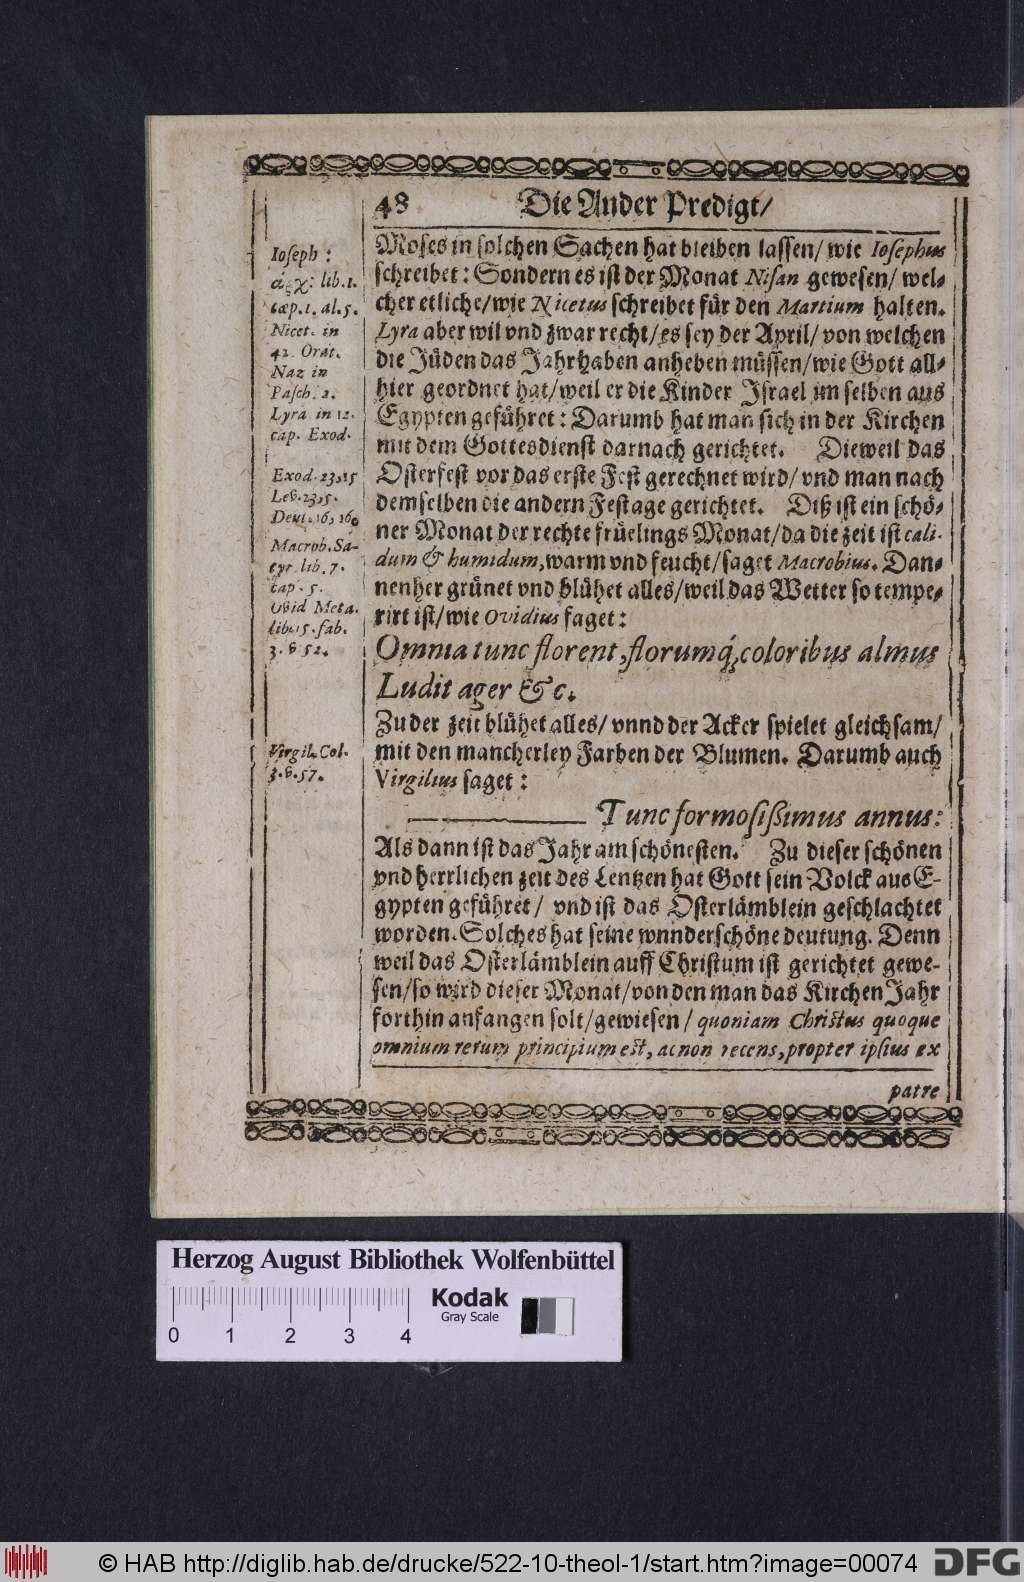 48 Die Ander Predigt/
Moses in solchen Sachen hat bleiben lassen/ wie Iosephus
schreibet: Sondern es ist der Monat Nisan gewesen/ wel-
cher etliche/wie Nicetus schreibet für den Martium halten.
Lyra aber wil vnd zwar recht/es sey der April/ von welchen
die Jüden das Jahr haben anheben müssen/wie Gott all-
hier geordnet hat/weil er die Kinder Israel im selben aus
Egypten geführet: Darumb hat man sich in der Kirchen
mit dem Gottesdienst darnach gerichtet. Dieweil das
Osterfest vor das erste Fest gerechnet wird/ vnd man nach
demselben die andern Festage gerichtet. Diß ist ein schö-
ner Monat der rechte früelings Monat/da die zeit ist cali-
dum & humidum, warm vnd feucht/saget Macrobius. Dan-
nenher grünet vnd blühet alles/weil das Wetter so tempe-
rirt ist/wie Ovidius saget:
Omnia tunc florent, florumq́; coloribus almus
Ludit ager &c.
Zu der zeit blühet alles/ vnnd der Acker spielet gleichsam/
mit den mancherley Farben der Blumen. Darumb auch
Virgilius saget:
Tunc formosißimus annus:
Als dann ist das Jahr am schönesten. Zu dieser schönen
vnd herrlichen zeit des Lentzen hat Gott sein Volck aus E-
gypten geführet/ vnd ist das Osterlämblein geschlachtet
worden. Solches hat seine wnnderschöne deutung. Denn
weil das Osterlämblein auff Christum ist gerichtet gewe-
sen/so wird dieser Monat/von den man das Kirchen Jahr
forthin anfangen solt/gewiesen/ quoniam Christus quoque
omnium rerum principium est, ac non recens, propter ipsius ex
patre
Ioseph:
ἀρχ: lib. 1.
cap. 1. al. 5.
Nicet. in
42. Orat.
Naz in
Pasch. 2.
Lyra in 12.
cap. Exod.
Exod. 23, 15
Lev. 23, 5.
Deut. 16, 16.
Macrob. Sa-
tyr. lib. 7.
cap. 5.
Ovid Meta.
lib. 15. fab.
3. v. 52.
Virgil. Col.
3. v. 57.
Herzog August Bibliothek Wolfenbüttel
0 1 2 3 4
Kodak
Gray Scale
© HAB http://diglib.hab.de/drucke/522-10-theol-1/start.htm?image=00074
DFG